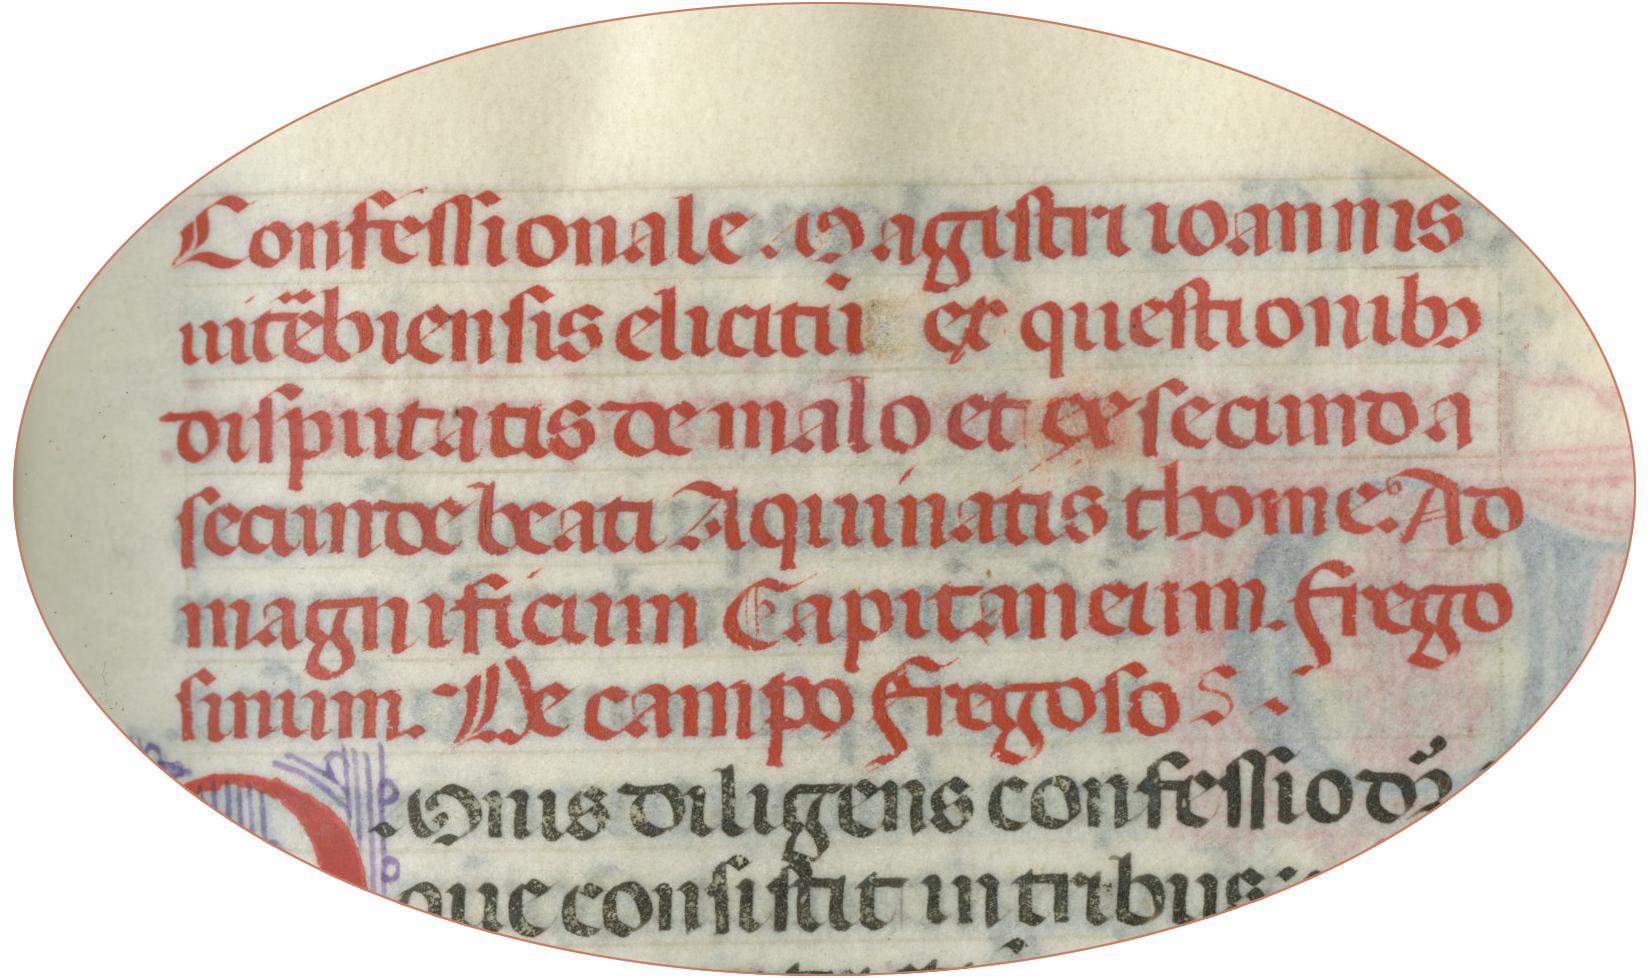 Confessionale. Magistri ioannis
uit̃ebiensis elicitũ ex questionibꝫ
disputatis de malo et ex secunda
secunde beati Aquinatis thome. Ad
magnificum Capitaneum. frego
sinum. De campo fregoso S.
.Mnis diligens confessio
que consistit in tribus